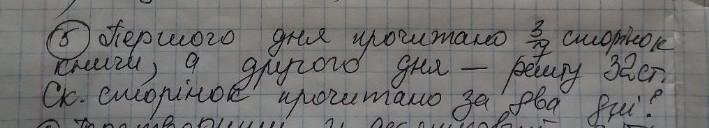 ⑤ Першого дня прочитано 3/7 сторінок
книги, а другого дня — решту 32 ст.
Ск. сторінок прочитано за два дні?